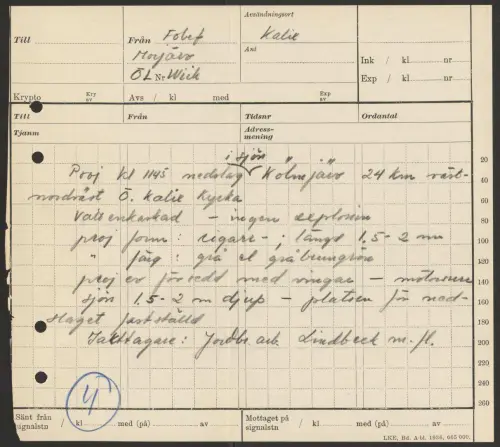 Avsändningsort
Till Från Fobef Kalix
Morjärv Ant Ink / kl nr
ÖL Nr Wiik Exp / kl nr
Krypto Kry av Avs / kl med Exp av
Till Från Tidsnr Ordantal
Tjanm Adress-mening
i sjön " "
Proj kl 1145 nedslag Kölmjärv 24 km väst-
nordväst Ö. Kalix Kyrka
Vattenkaskad - ingen explosion
proj form: cigarr- ; längd 1,5-2 m
" färg: grå el gråbrungrön
proj ev försedd med vingar -
sjön 1,5-2 m djup - platsen för ned-
slaget fastställd
Iakttagare: Jordbr. arb. Lindbeck m. fl.
4
20
40
60
80
100
120
140
160
180
200
220
240
260
Sänt från signalstn / kl med (på) av Mottaget på signalstn / kl med (på) av
LKE, Bd. A-bl. 1938, 665 000.